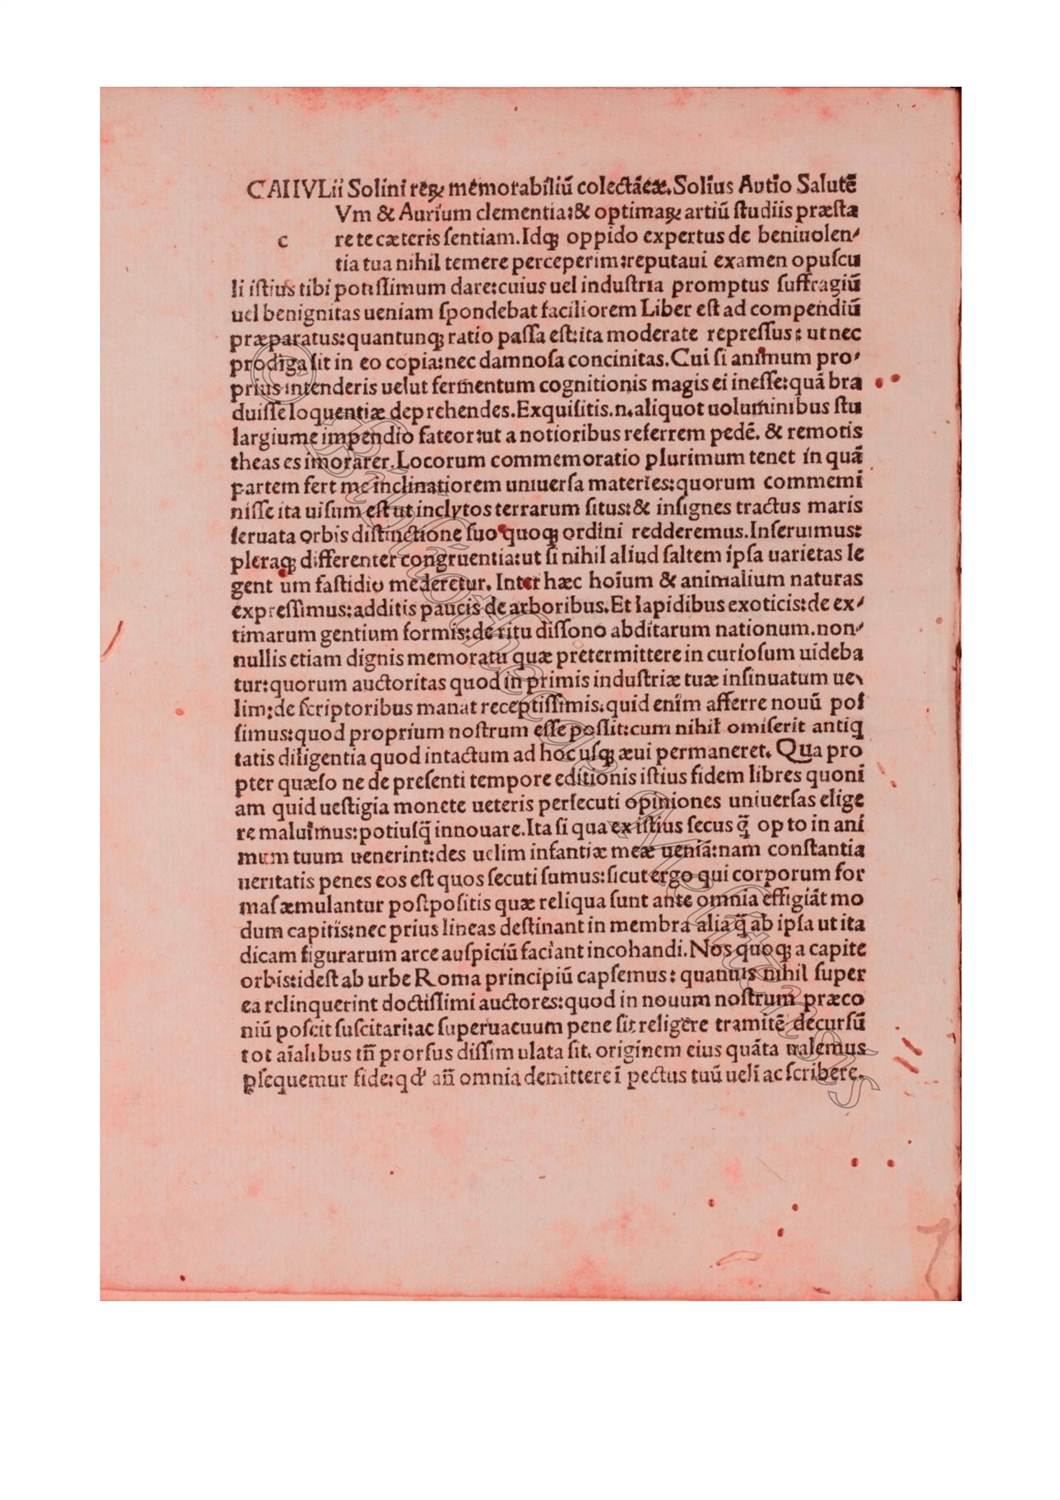 CAII IVLii Solini reꝝ mémorabiliū colectāeæ. Solius Autio Salutē
Vm & Aurium clementia: & optimaꝝ artiū studiis præsta
c re te cæteris sentiam. Idqꝫ oppido expertus de beniuolen-
tia tua nihil temere perceperim: reputaui examen opuscu
li istius tibi potissimum dare: cuius uel industria promptus suffragiū
uel benignitas ueniam spondebat faciliorem Liber est ad compendiū
præparatus: quantunqꝫ ratio passa est: ita moderate repressus: ut nec
prodiga sit in eo copia: nec damnosa concinitas. Cui si animum pro-
prius intenderis uelut fermentum cognitionis magis ei inesse: quā bra
duisse loquentiæ deprehendes. Exquisitis .n. aliquot uoluminibus stu
largiume impendio fateor: ut a notioribus referrem pedē. & remotis
theas es imorarer. Locorum commemoratio plurimum tenet in quā
partem fert me inclinatiorem uniuersa materies: quorum commemi
nisse ita uisum est ut inclytos terrarum situs: & insignes tractus maris
seruata orbis distinctione suo quoqꝫ ordini redderemus. Inseruimus:
pleraqꝫ differenter congruentia: ut si nihil aliud saltem ipsa uarietas le
gent um fastidio mederetur. Inter hæc hoīum & animalium naturas
expressimus: additis paucis de arboribus. Et lapidibus exoticis: de ex-
timarum gentium formis: de ritu dissono abditarum nationum. non-
nullis etiam dignis memoratu quæ pretermittere in curiosum uideba
tur: quorum auctoritas quod in primis industriæ tuæ insinuatum ue-
lim: de scriptoribus manat receptissimis. quid enim afferre nouū pos
simus: quod proprium nostrum esse possit: cum nihil omiserit antiq
tatis diligentia quod intactum ad hoc usqꝫ æui permaneret. Qua pro
pter quæso ne de presenti tempore editionis istius fidem libres quoni
am quid uestigia monete ueteris persecuti opiniones uniuersas elige
re maluimus: potiusq̄ innouare. Ita si qua ex istius secus q̄ op to in ani
mum tuum uenerint: des uelim infantiæ meæ ueniā: nam constantia
ueritatis penes eos est quos secuti sumus: sicut ergo qui corporum for
mas æmulantur postpositis quæ reliqua sunt ante omnia effigiāt mo
dum capitis: nec prius lineas destinant in membra alia q̄ ab ipsa ut ita
dicam figurarum arce auspiciū faciant incohandi. Nos quoqꝫ a capite
orbis: idest ab urbe Roma principiū capsemus: quanuis nihil super
ea relinquerint doctissimi auctores: quod in nouum nostrum præco
niū poscit suscitari: ac superuacuum pene sit religere tramitē decursū
tot aīalibus tn̄ prorsus dissim ulata sit. originem eius quāta ualemus
ꝑsequemur fide: qd' an̄ omnia demittere ī pectus tuū uelī ac scribere.
© Biblioteca Nacional de España